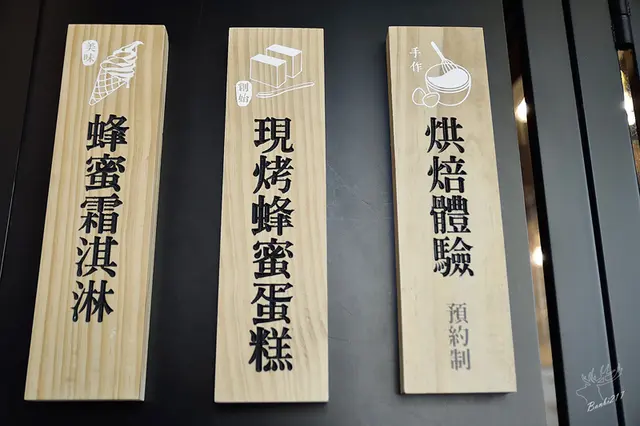 美味
蜂蜜霜淇淋
創始
現烤蜂蜜蛋糕
手作
烘焙體驗
預約制
Bambi217